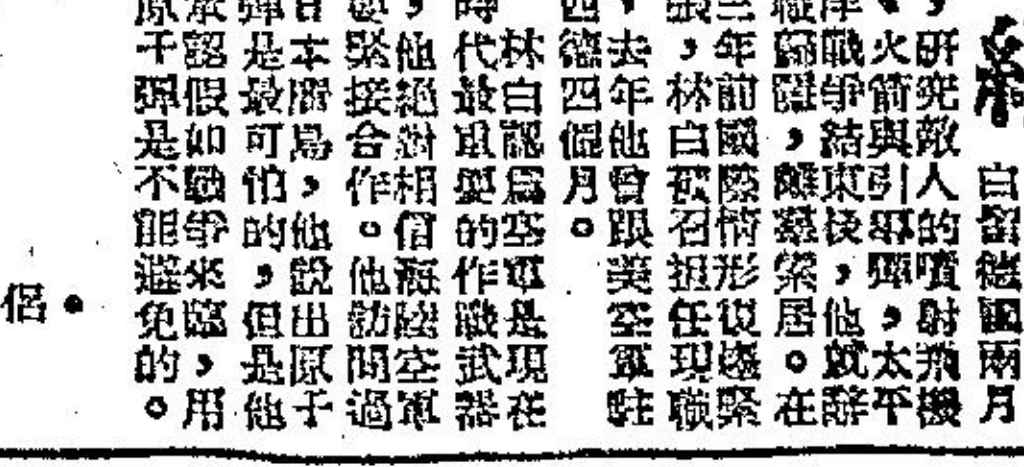 白留德國兩月
，研究敵人的噴射飛機
、火箭與引導彈，太平
洋戰爭結束後，他就辭
職歸隱，離羣索居。在
三年前國際情形又趨緊
張，林白被召担任現職
，去年他曾跟美空軍駐
西德四個月。
林白認爲空軍是現在
時代最重要的作戰武器
，他絕對相信海陸空軍
須緊接合作。他訪問過
日本廣島，他說出原子
彈是最可怕的，但是他
承認假如戰爭來臨，用
原子彈是不能避免的。
•
侶